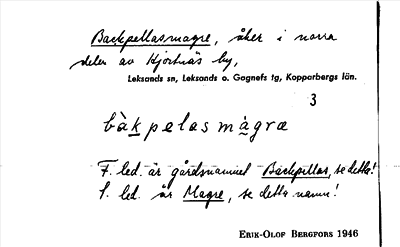 Backpellasmagre, åker i norra
delen av Hjortnäs by,
Leksands sn, Leksands o. Gagnefs tg, Kopparbergs län.
3
bàkpelasmàgræ
F. led. är gårdsnamnet Backpellas, se detta!
S. led. är Magre, se detta namn!
ERIK-OLOF BERGFORS 1946